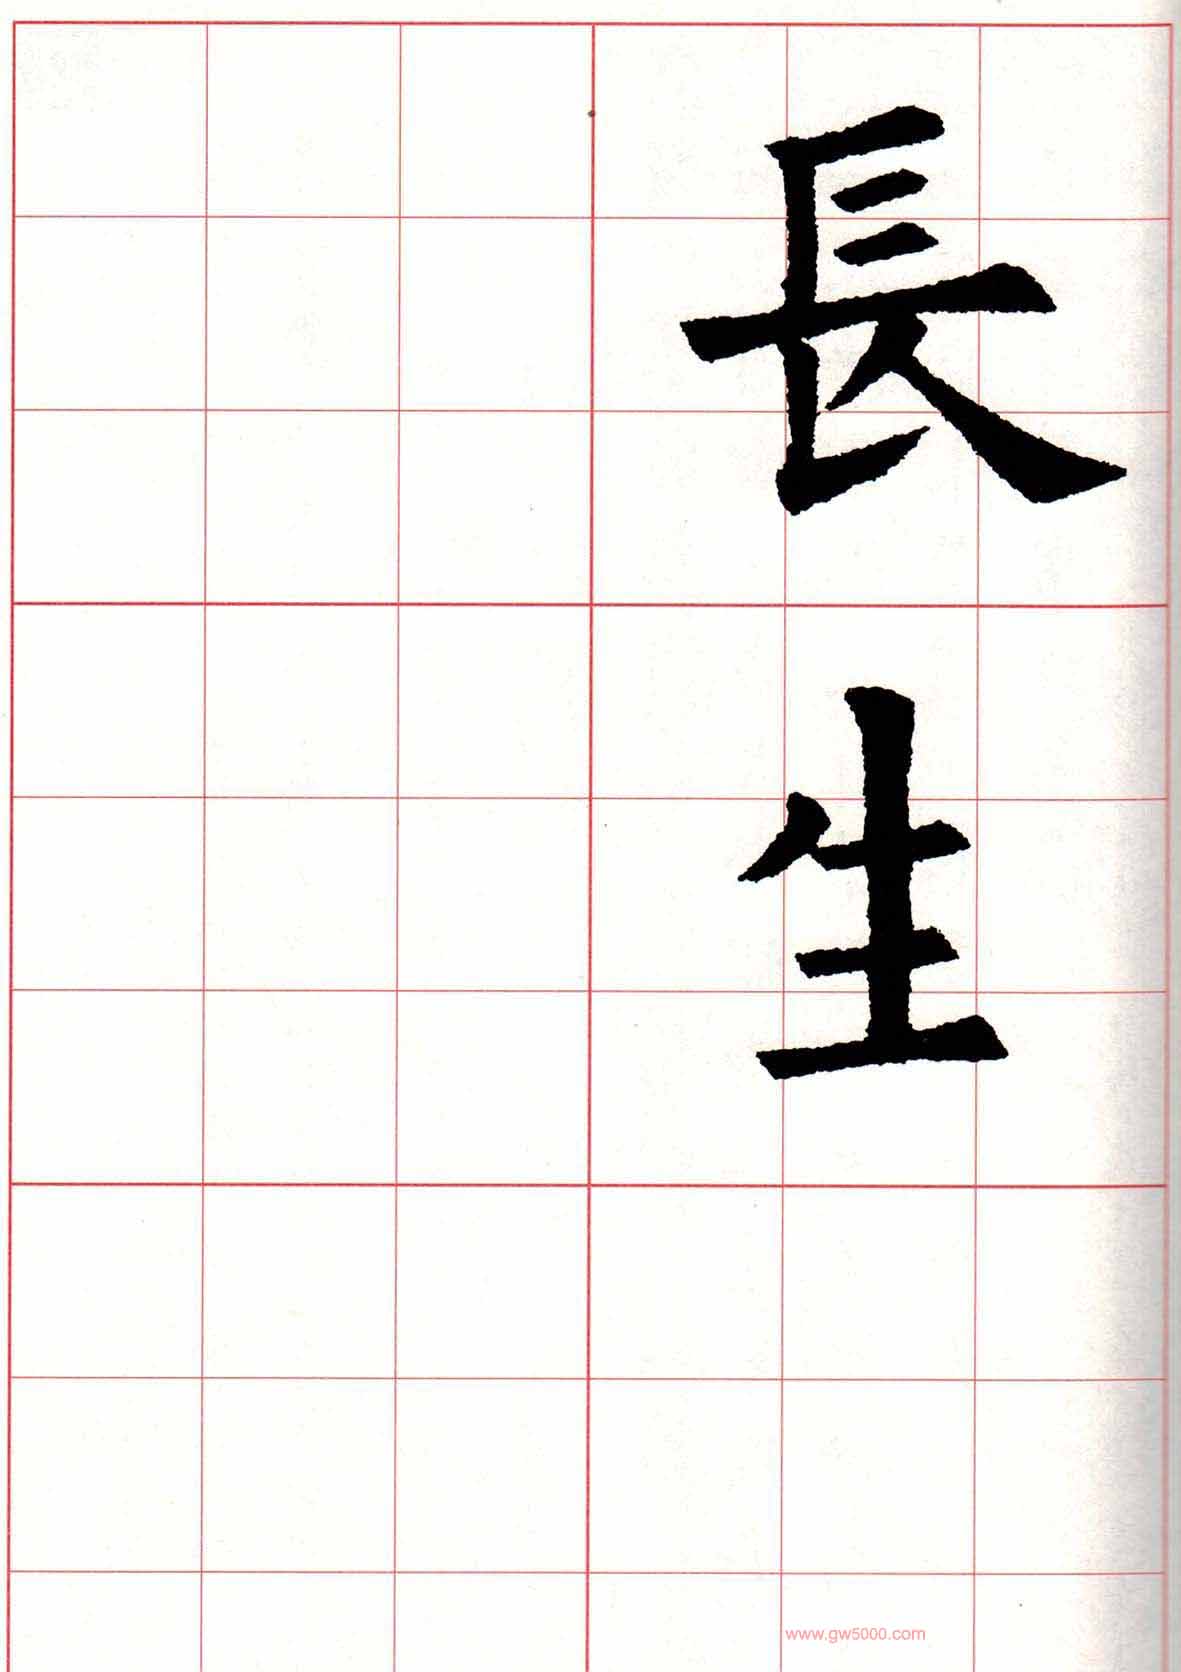 長生
www.gw5000.com